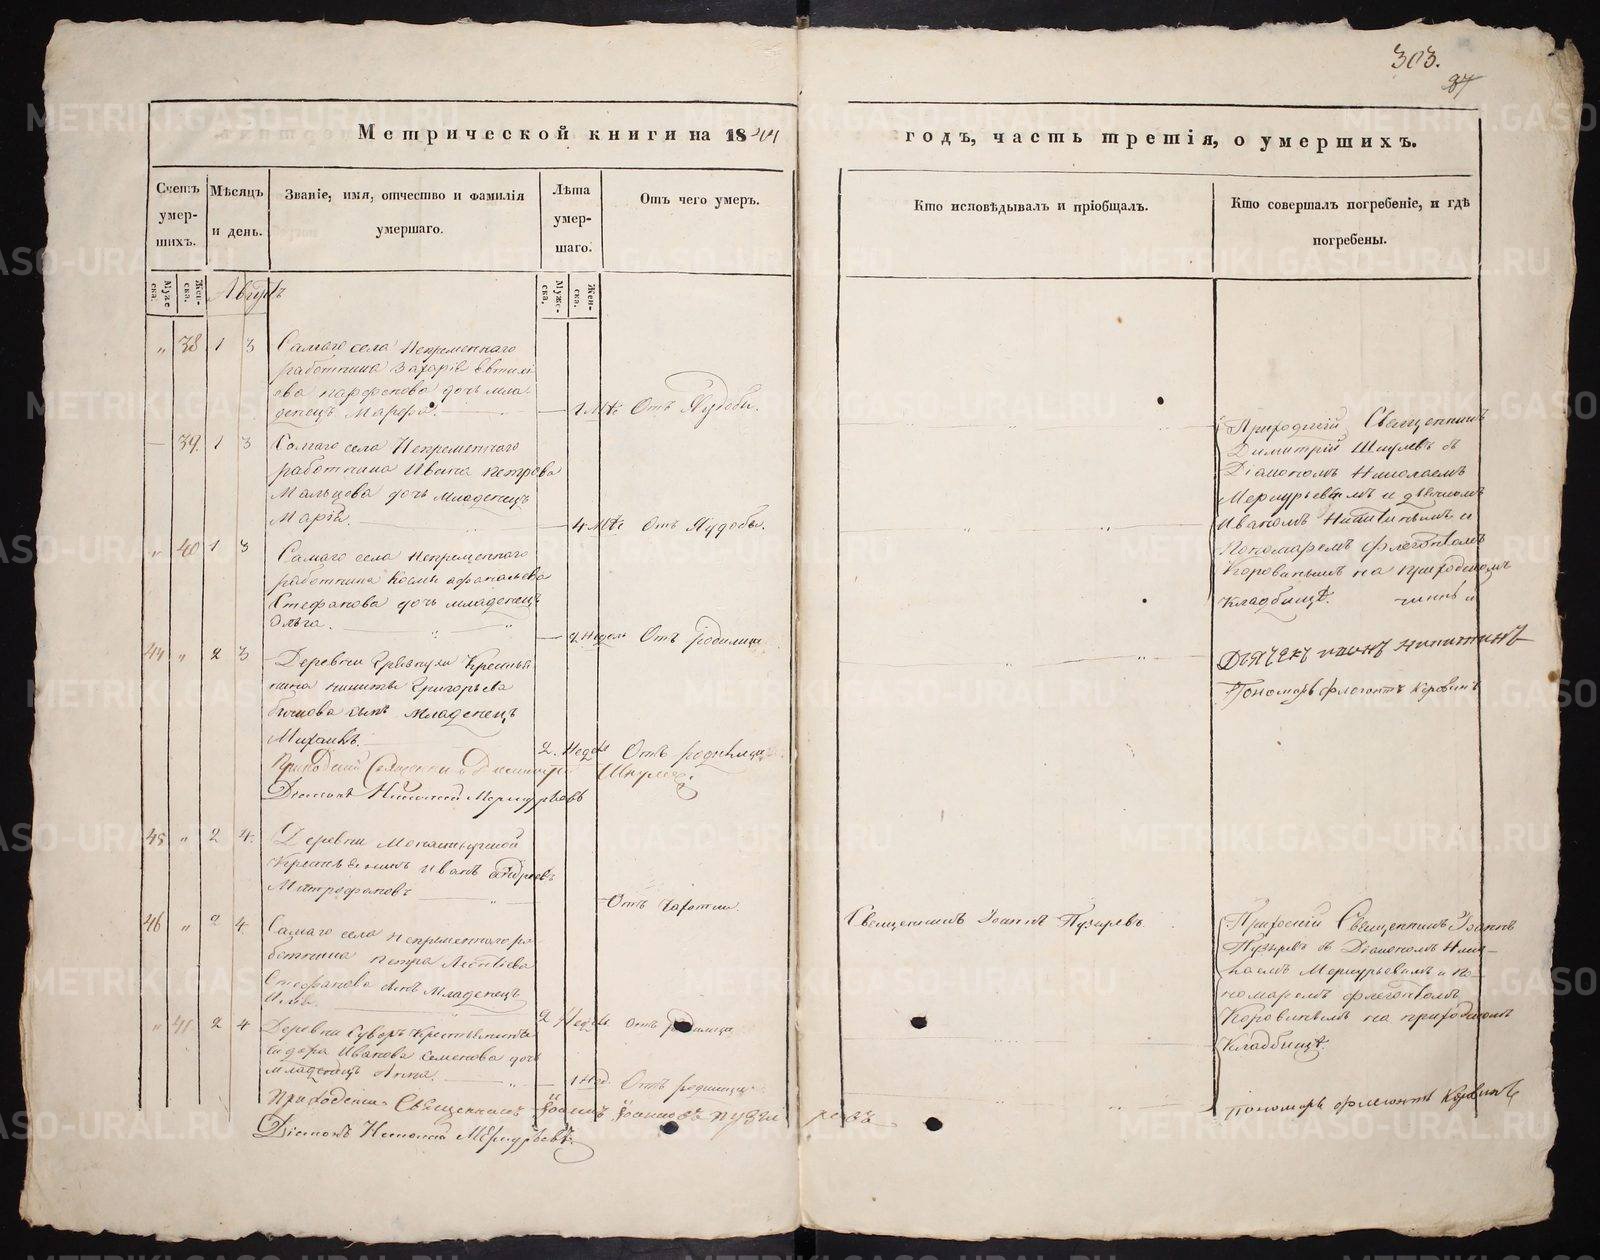 303.
Метрической книги на 18
годъ, часть третія, о умершихъ.
Счетъ умер-шихъ.
Мѣсяцъ и день.
Званіе, имя, отчество и фамилія умершаго.
Лѣта умер-шаго.
Отъ чего умеръ.
Кто исповѣдывалъ и пріобщалъ.
Кто совершалъ погребеніе, и гдѣ погребены.
Муже ска.
Жен-ска.
Муже-ска.
Жен-ска.
38 1 3 Самаго села Непременнаго
работника Захарія
Парфенова дочь мла-
денецъ Марфа. Отъ Худобы.
39. 1 3 Самаго села Непременнаго
работника Ивана Петрова
Мальцова дочь младенецъ
Марія. 4 Отъ Худобы.
40 1 3 Самаго села Непременнаго
работника Космы Афанасьева
Стефанова дочь младенецъ
Ольга. Недель Отъ родимца
44 " 2 3 Деревни Крестья
нина Никиты Григорьева
сынъ Младенецъ
Михаилъ. 2. Отъ родимца
Приходскій Священникъ Димитрій
Діаконъ Николай Меркурьевъ
45 " 2 4. Деревни
Крестьянинъ Иванъ Андреевъ
Митрофановъ Отъ Чахотки.
46 " 2 4 Самаго села Непременнаго ра-
ботника Петра Леонтіева
Стефанова сынъ Младенецъ
2 Отъ родимца
" 2 4 Деревни
Иванова Семенова дочь
младенецъ Анна. 1 Нед. Отъ родимца
Приходскій Священникъ Іоаннъ
Діаконъ Николай Меркурьевъ.
Приходскій Священникъ
Димитрій съ
Діакономъ Николаемъ
Меркурьевымъ и дьячкомъ
Иваномъ Никитинымъ и
Пономаремъ Флегонтомъ
Коровинымъ на приходскомъ
Кладбищѣ.
Дьячекъ Никитинъ
Пономарь Флегонтъ Коровинъ
Священникъ Іоаннъ Пузыревъ
Приходскій Священникъ Іоаннъ
Пузыревъ съ Діакономъ Нико-
лаемъ Меркурьевымъ и По-
номаремъ Флегонтомъ
Коровинымъ на приходскомъ
Кладбищѣ.
Пономарь Флегонтъ Коровинъ
METRIKI.GASO-URAL.RU